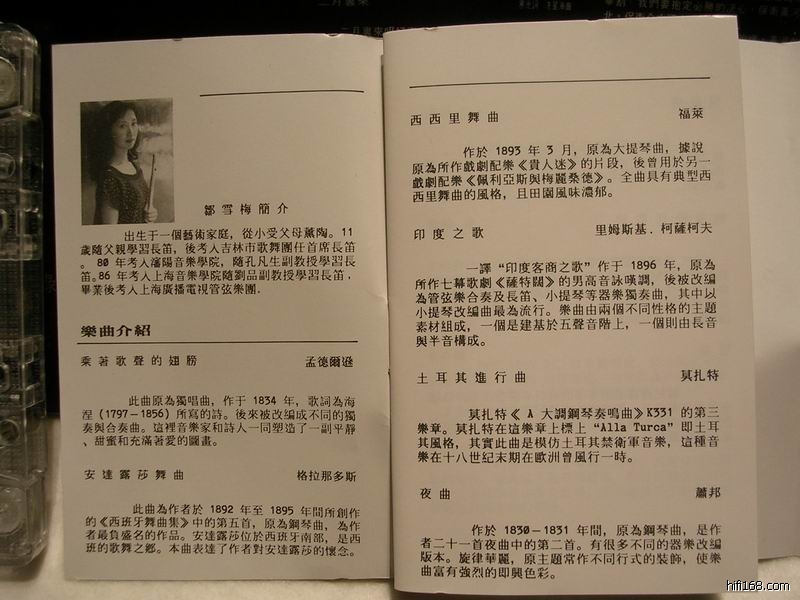 鄒雪梅簡介
出生于一個藝術家庭，從小受父母薰陶。11
歲隨父親學習長笛，後考人吉林市歌舞團任首席長笛
。80 年考人瀋陽音樂學院，隨孔凡生副教授學習長
笛。86 年考人上海音樂學院隨劉品副教授學習長笛，
畢業後考人上海廣播電視管弦樂團．
樂曲介紹
乘著歌聲的翅膀 孟德爾遜
此曲原為獨唱曲，作于 1834 年，歌詞為海
涅 (1797－1856) 所寫的詩。後來被改編成不同的獨
奏與合奏曲。這裡音樂家和詩人一同塑造了一副平靜
、甜蜜和充滿著愛的圖畫。
安達露莎舞曲 格拉那多斯
此曲為作者於 1892 年至 1895 年間所創作
的《西班牙舞曲集》中的第五首，原為鋼琴曲，為作
者最負盛名的作品。安達露莎位於西班牙南部，是西
班的歌舞之鄉。本曲表達了作者對安達露莎的懷念。
西西里舞曲 福萊
作於 1893 年 3 月，原為大提琴曲，據說
原為所作戲劇配樂《貴人迷》的片段，後曾用於另一
戲劇配樂《佩利亞斯與梅麗桑德》。全曲具有典型西
西里舞曲的風格，且田園風味濃郁。
印度之歌 里姆斯基．柯薩柯夫
一譯“印度客商之歌”作于 1896 年，原為
所作七幕歌劇《薩特闊》的男高音詠嘆調，後被改編
為管弦樂合奏及長笛、小提琴等器樂獨奏曲，其中以
小提琴改編曲最為流行。樂曲由兩個不同性格的主題
素材組成，一個是建基於五聲音階上，一個則由長音
與半音構成。
土耳其進行曲 莫扎特
莫扎特《 A 大調鋼琴奏鳴曲》K331 的第三
樂章。莫扎特在這樂章上標上“Alla Turca”即土耳
其風格，其實此曲是模仿土耳其禁衛軍音樂，這種音
樂在十八世紀末期在歐洲曾風行一時。
夜曲 蕭邦
作於 1830－1831 年間，原為鋼琴曲，是作
者二十一首夜曲中的第二首。有很多不同的器樂改編
版本。旋律華麗，原主題常作不同行式的裝飾，使樂
曲富有強烈的即興色彩。
hifi168.com